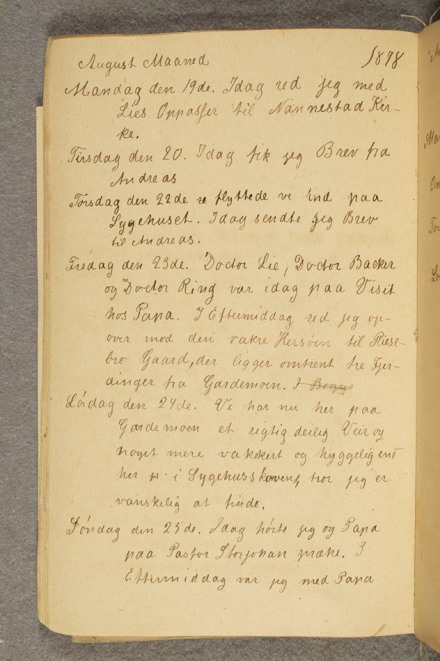 August Maaned 1878
Mandag den 19de. Idag red jeg med
Lies Oppasser til Nannestad Kir-
ke.
Tirsdag den 20. Idag fik jeg Brev fra
Andreas
Torsdag den 22de flyttede vi ind paa
Sygehuset. Idag sendte jeg Brev
til Andreas.
Fredag den 23de. Doctor Lie, Doctor Backer
og Doctor Ring var idag paa Visit
hos Papa. I Eftermiddag red jeg op-
over mod den vakre Hersøen til Riise-
bro Gaard, der ligger omtrent tre Fjer-
dinger fra Gardemoen. I
Lørdag den 24de. Vi har nu her paa
Gardemoen et rigtig deilig Veir og
noget mere vakkert og hyggelig end
her i Sygehusskoven, tror jeg er
vanskelig at finde.
Søndag den 25de. Idag hørte jeg og Papa
paa Pastor Storjohan præke. I
Eftermiddag var jeg med Papa